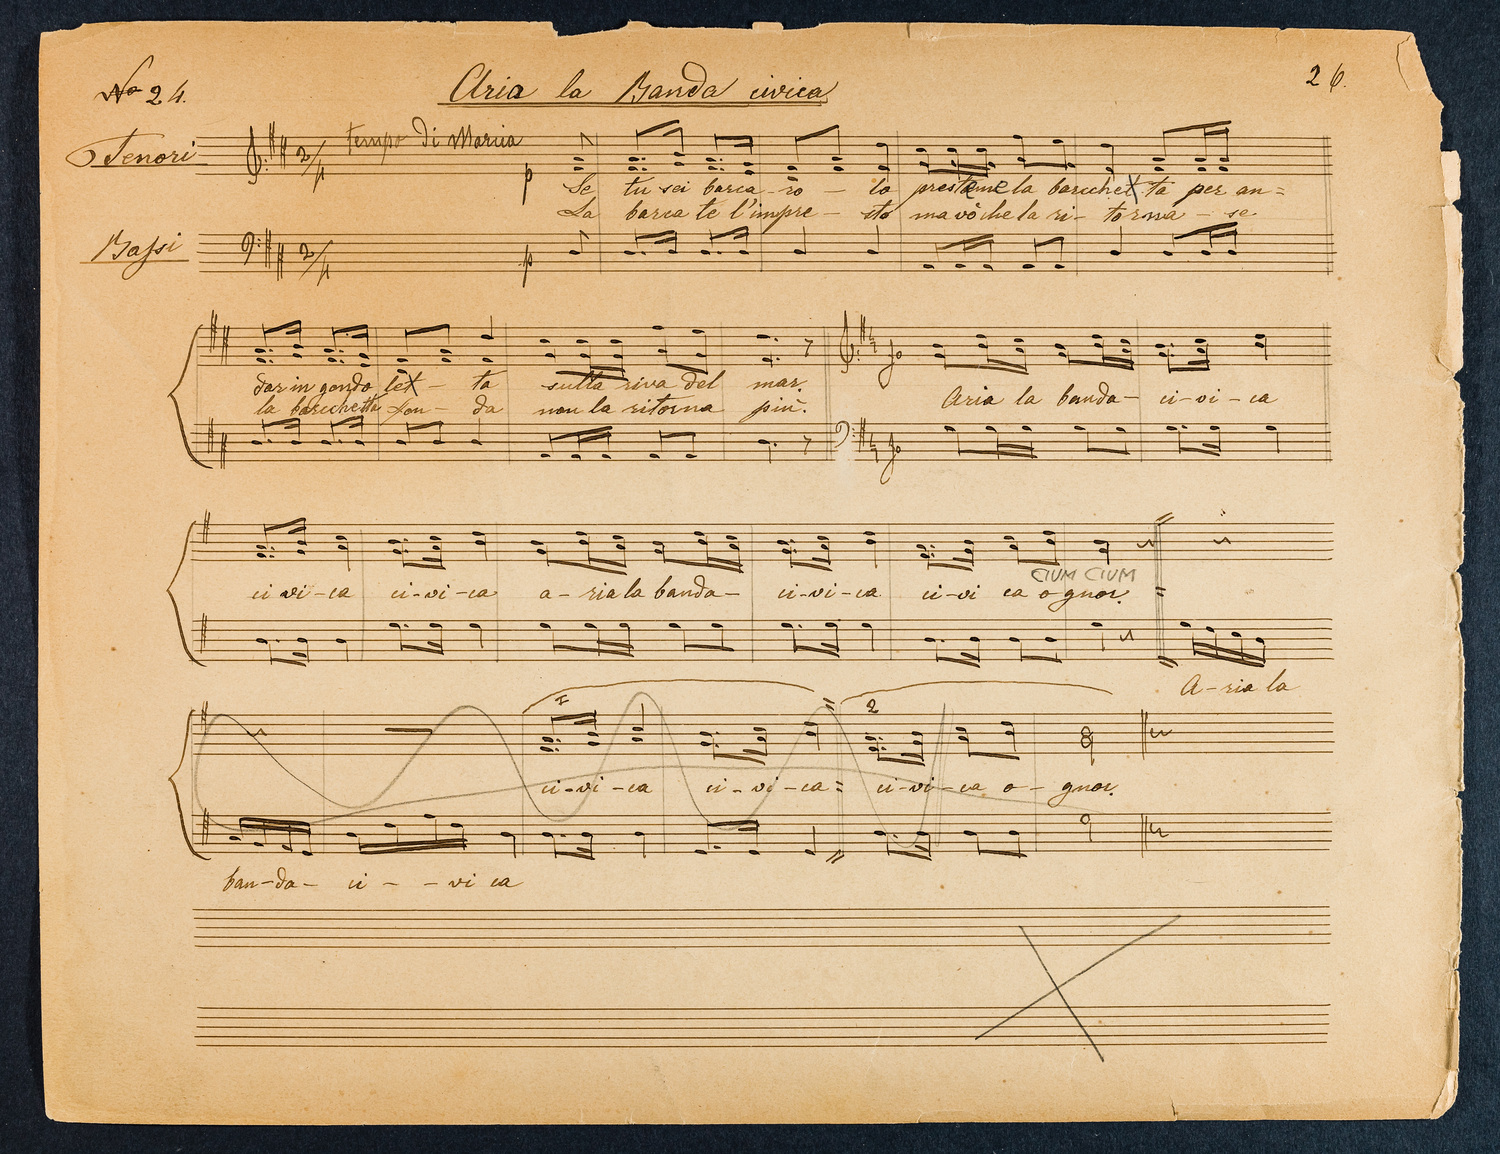 No 24. Aria la Banda civica 26.
Tenori tempo di Marcia
p Se tu sei barca-ro - lo prestame la barchetta per an=
La barca te l'impre - sto ma vò che la ri - torna - se
Bassi p
dar in gondo let - ta sulla riva del mar.
la barchetta fon - da non la ritorna più. Aria la banda - ci-vi-ca
CIUM CIUM
ci vi-ca ci-vi-ca a-ria la banda - ci-vi-ca ci-vi ca o gnor.
A-ria la
1 2
ci-vi-ca ci-vi-ca= ci-vi-ca o - gnor.
ban-da - ci - - vi ca